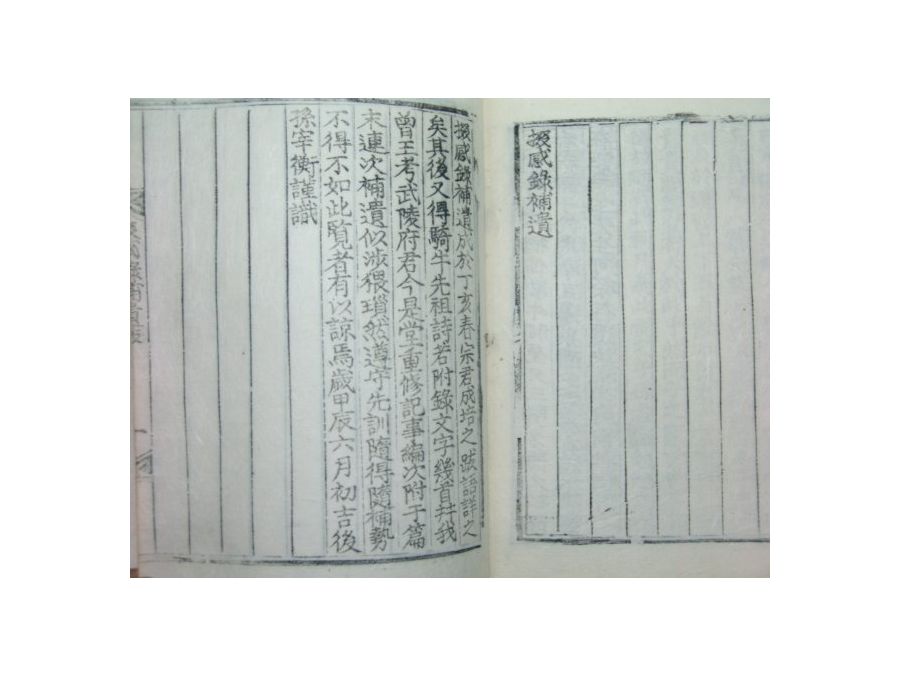 掇感錄補遺
掇感錄補遺成於丁亥春宗君成培之跋語詳之
矣其後又得騎牛先祖詩若附錄文字幾首幷我
曾王考武陵府君今是堂重修記事編次附于篇
末連次補遺似涉猥瑣然遵守先訓隨得隨補勢
不得不如此覧者有以諒焉歲甲辰六月初吉後
孫宰衡謹識